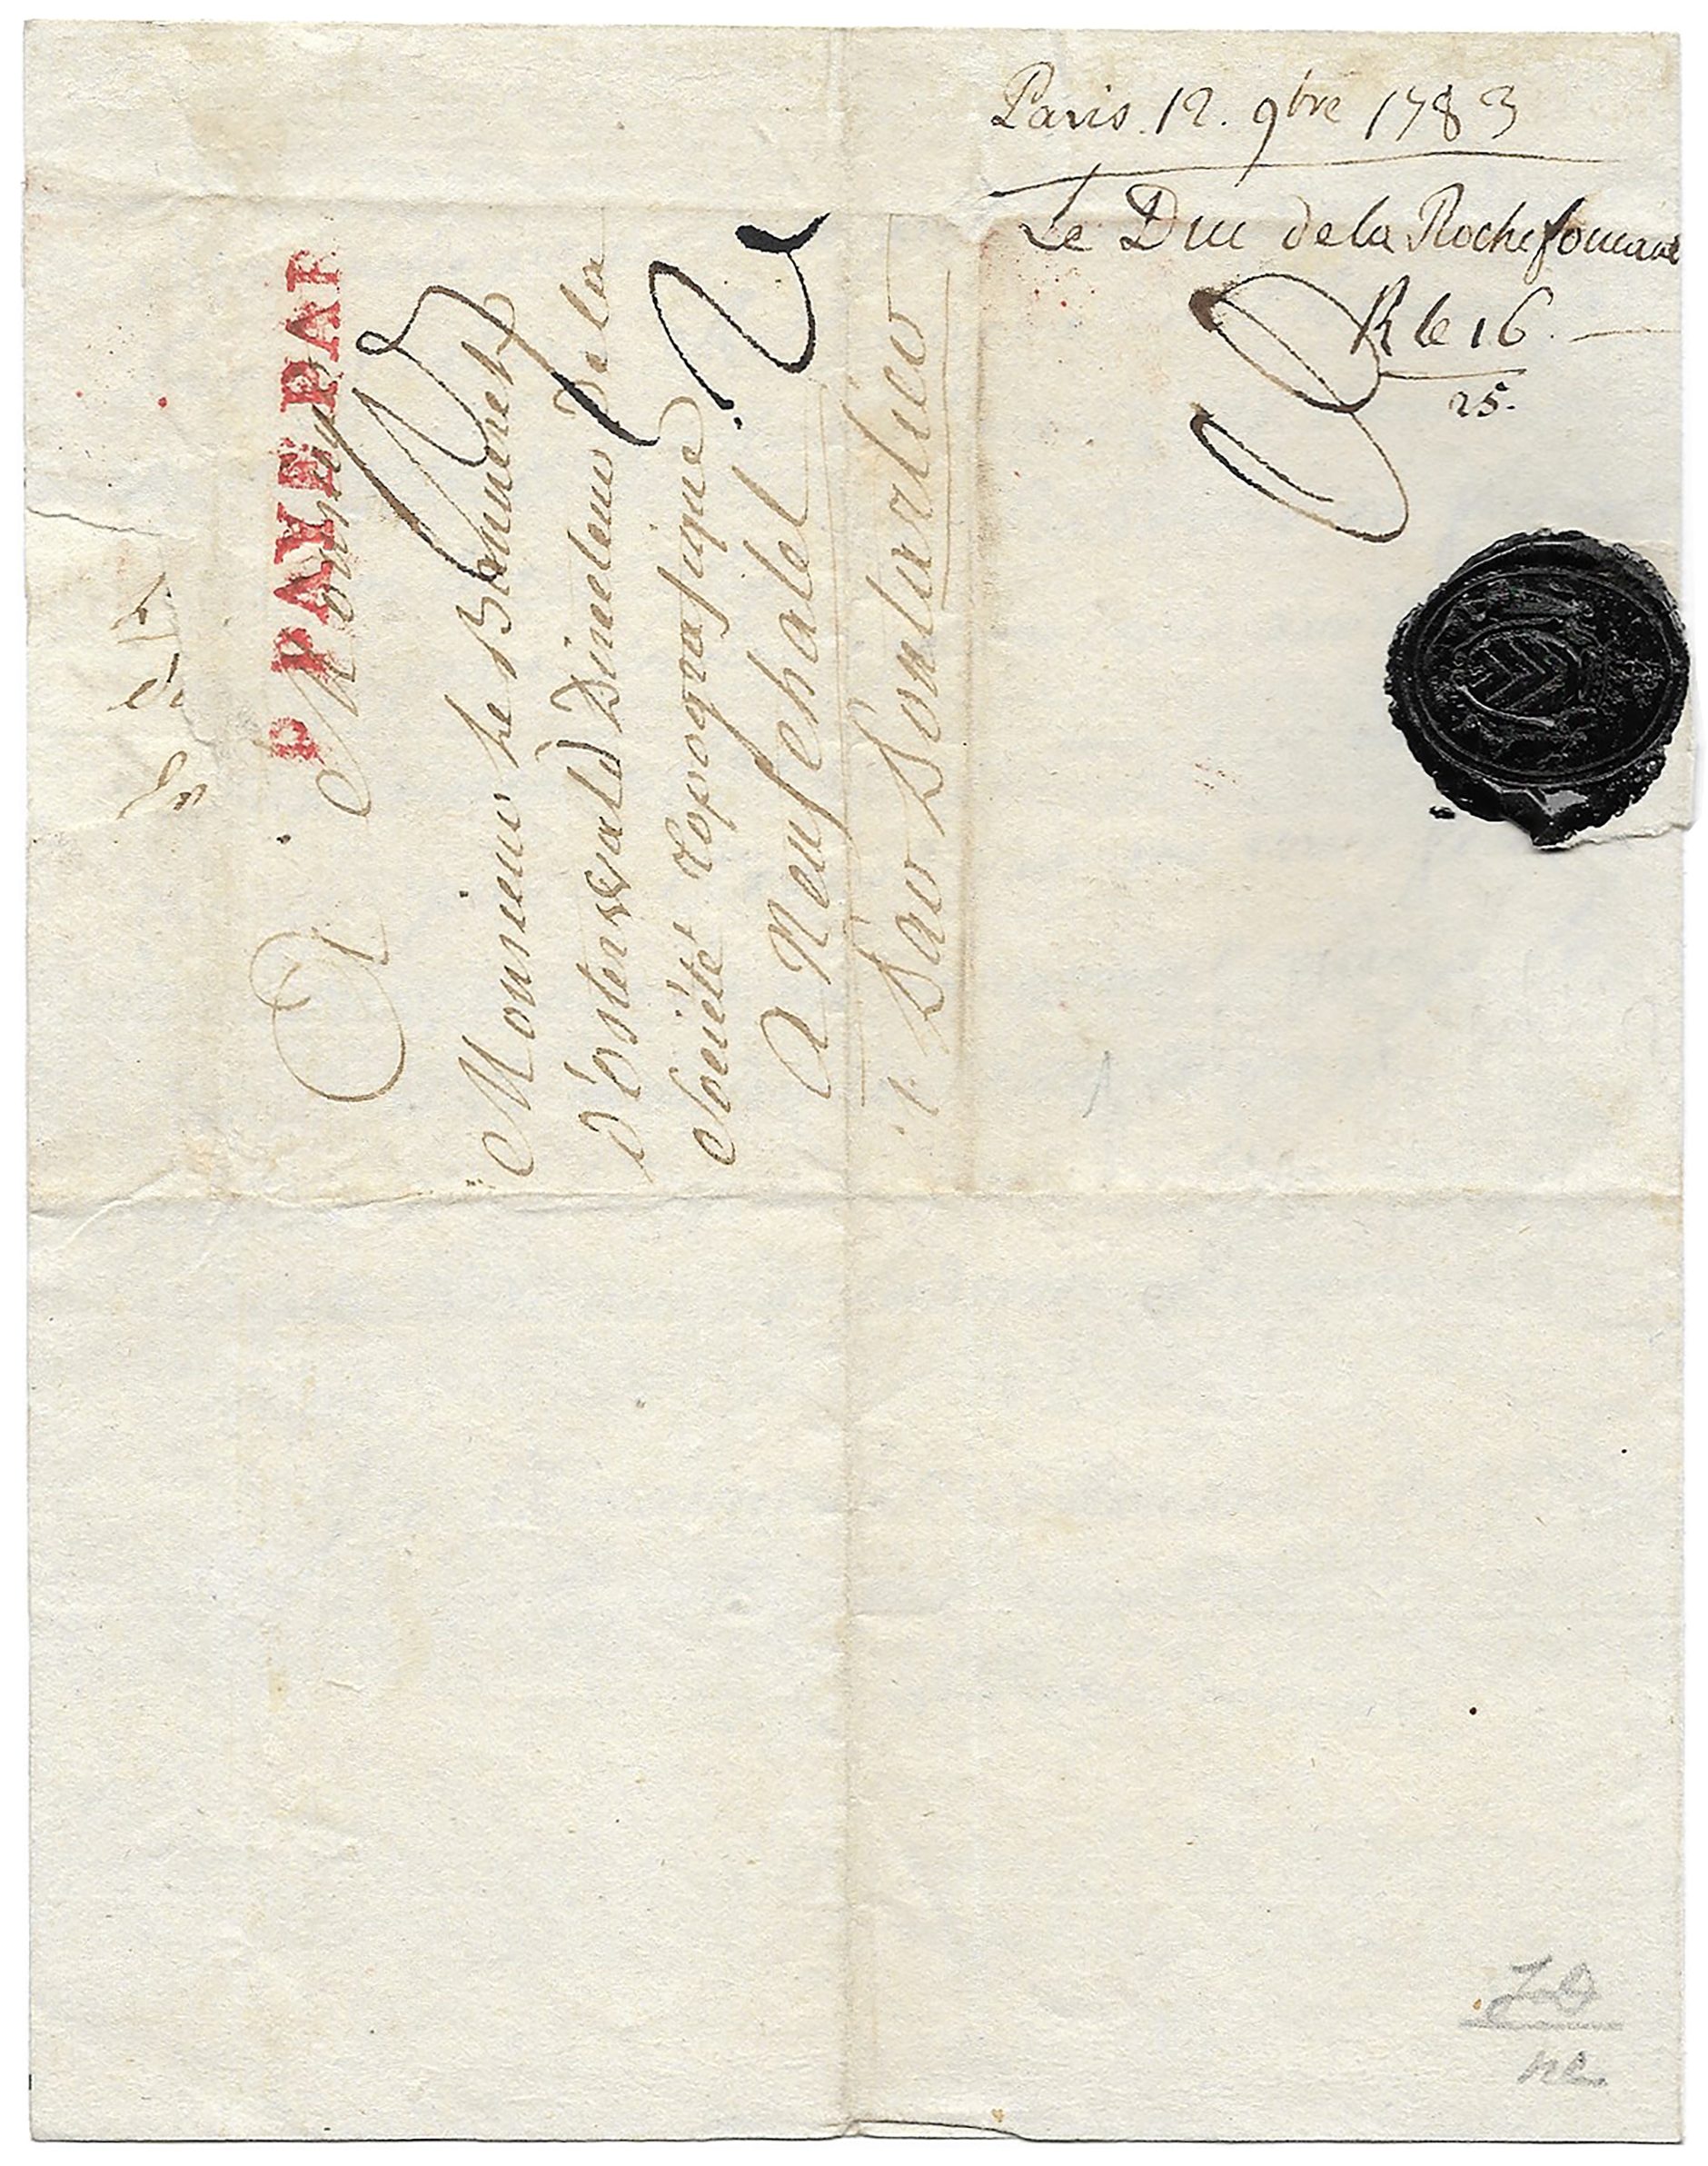 Paris. 12. 9bre 1783
Le Duc de la Rochefoucaud
R le 16.
25.
P PAYE PAR
A Monsieur
Monsieur le Banneret
d'Ostervald Directeur de la
Société topografique
A Neufchatel
par Pontarlier